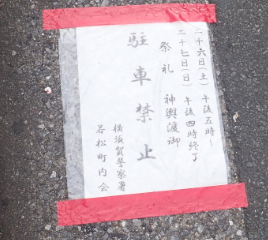 二十六日(土)午後五時〜
二十七日(日)午後四時終了
祭礼 神輿渡御
駐車禁止
横須賀警察署
若松町内会